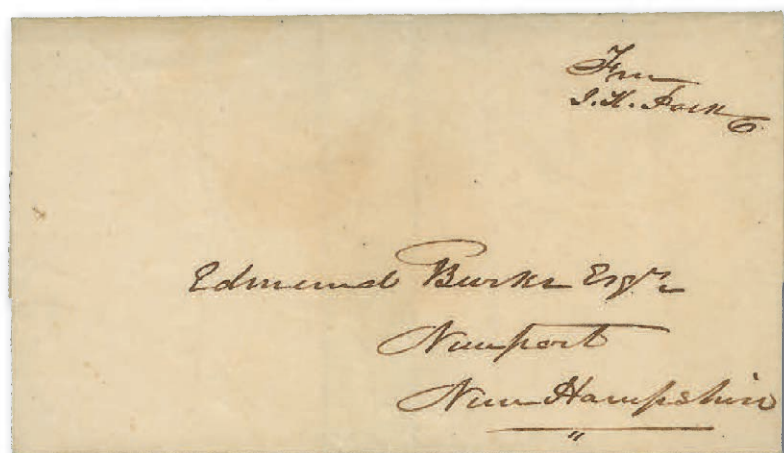 Free
J. K. Polk
Edmund Burke Esqr
Newport
New Hampshire
"